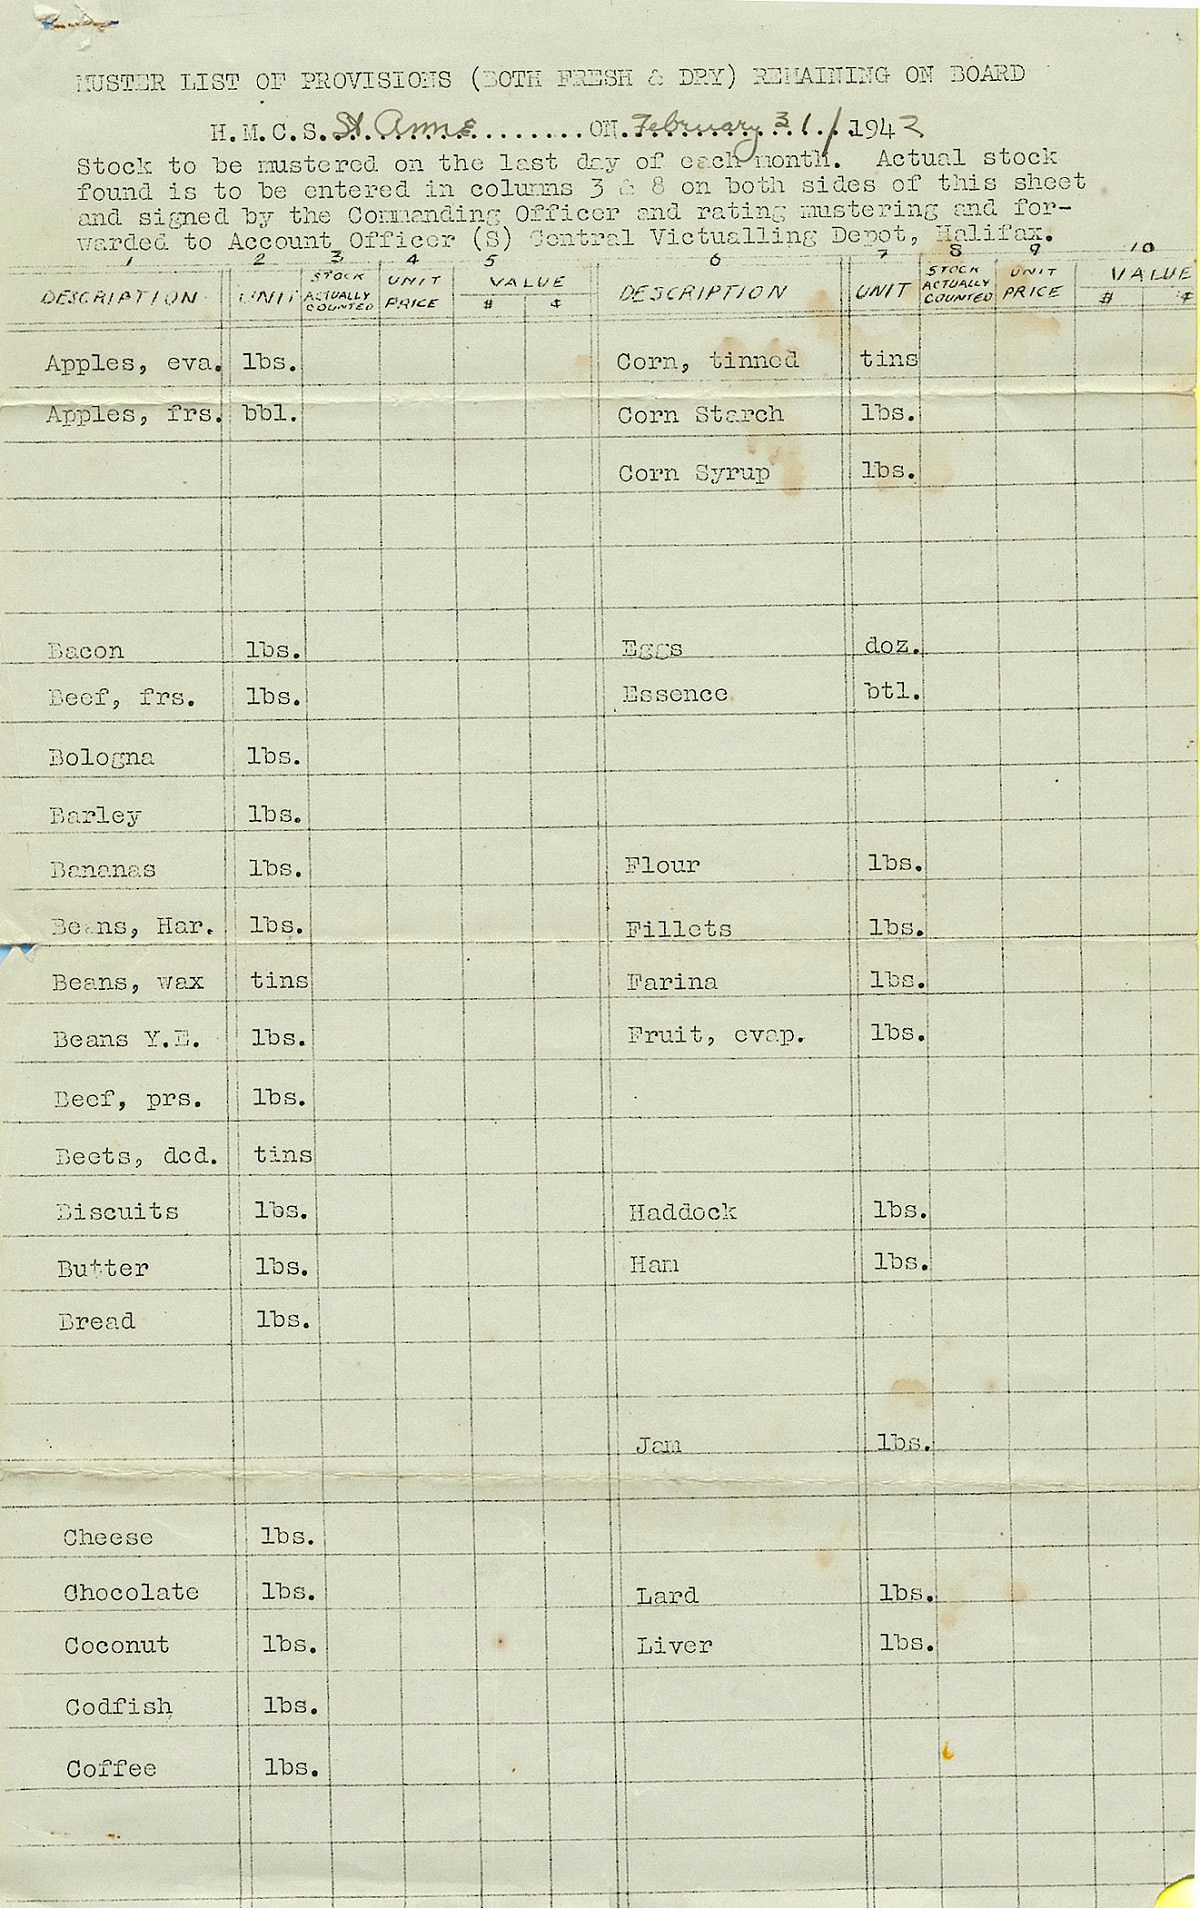 MUSTER LIST OF PROVISIONS (BOTH FRESH & DRY) REMAINING ON BOARD
H.M.C.S. St. Anne ........ ON. February 31/ 1942
Stock to be mustered on the last day of each month. Actual stock
found is to be entered in columns 3 & 8 on both sides of this sheet
and signed by the Commanding Officer and rating mustering and for-
warded to Account Officer (S) Central Victualling Depot, Halifax.
1 2 3 4 5 6 7 8 9 10
DESCRIPTION UNIT STOCK ACTUALLY COUNTED UNIT PRICE VALUE # ¢ DESCRIPTION UNIT STOCK ACTUALLY COUNTED UNIT PRICE VALUE # ¢
Apples, eva. lbs. Corn, tinned tins
Apples, frs. bbl. Corn Starch lbs.
Corn Syrup lbs.
Bacon lbs. Eggs doz.
Beef, frs. lbs. Essence btl.
Bologna lbs.
Barley lbs.
Bananas lbs. Flour lbs.
Beans, Har. lbs. Fillets lbs.
Beans, wax tins Farina lbs.
Beans Y.E. lbs. Fruit, evap. lbs.
Beef, prs. lbs.
Beets, dcd. tins
Biscuits lbs. Haddock lbs.
Butter lbs. Ham lbs.
Bread lbs.
Jam lbs.
Cheese lbs.
Chocolate lbs. Lard lbs.
Coconut lbs. Liver lbs.
Codfish lbs.
Coffee lbs.